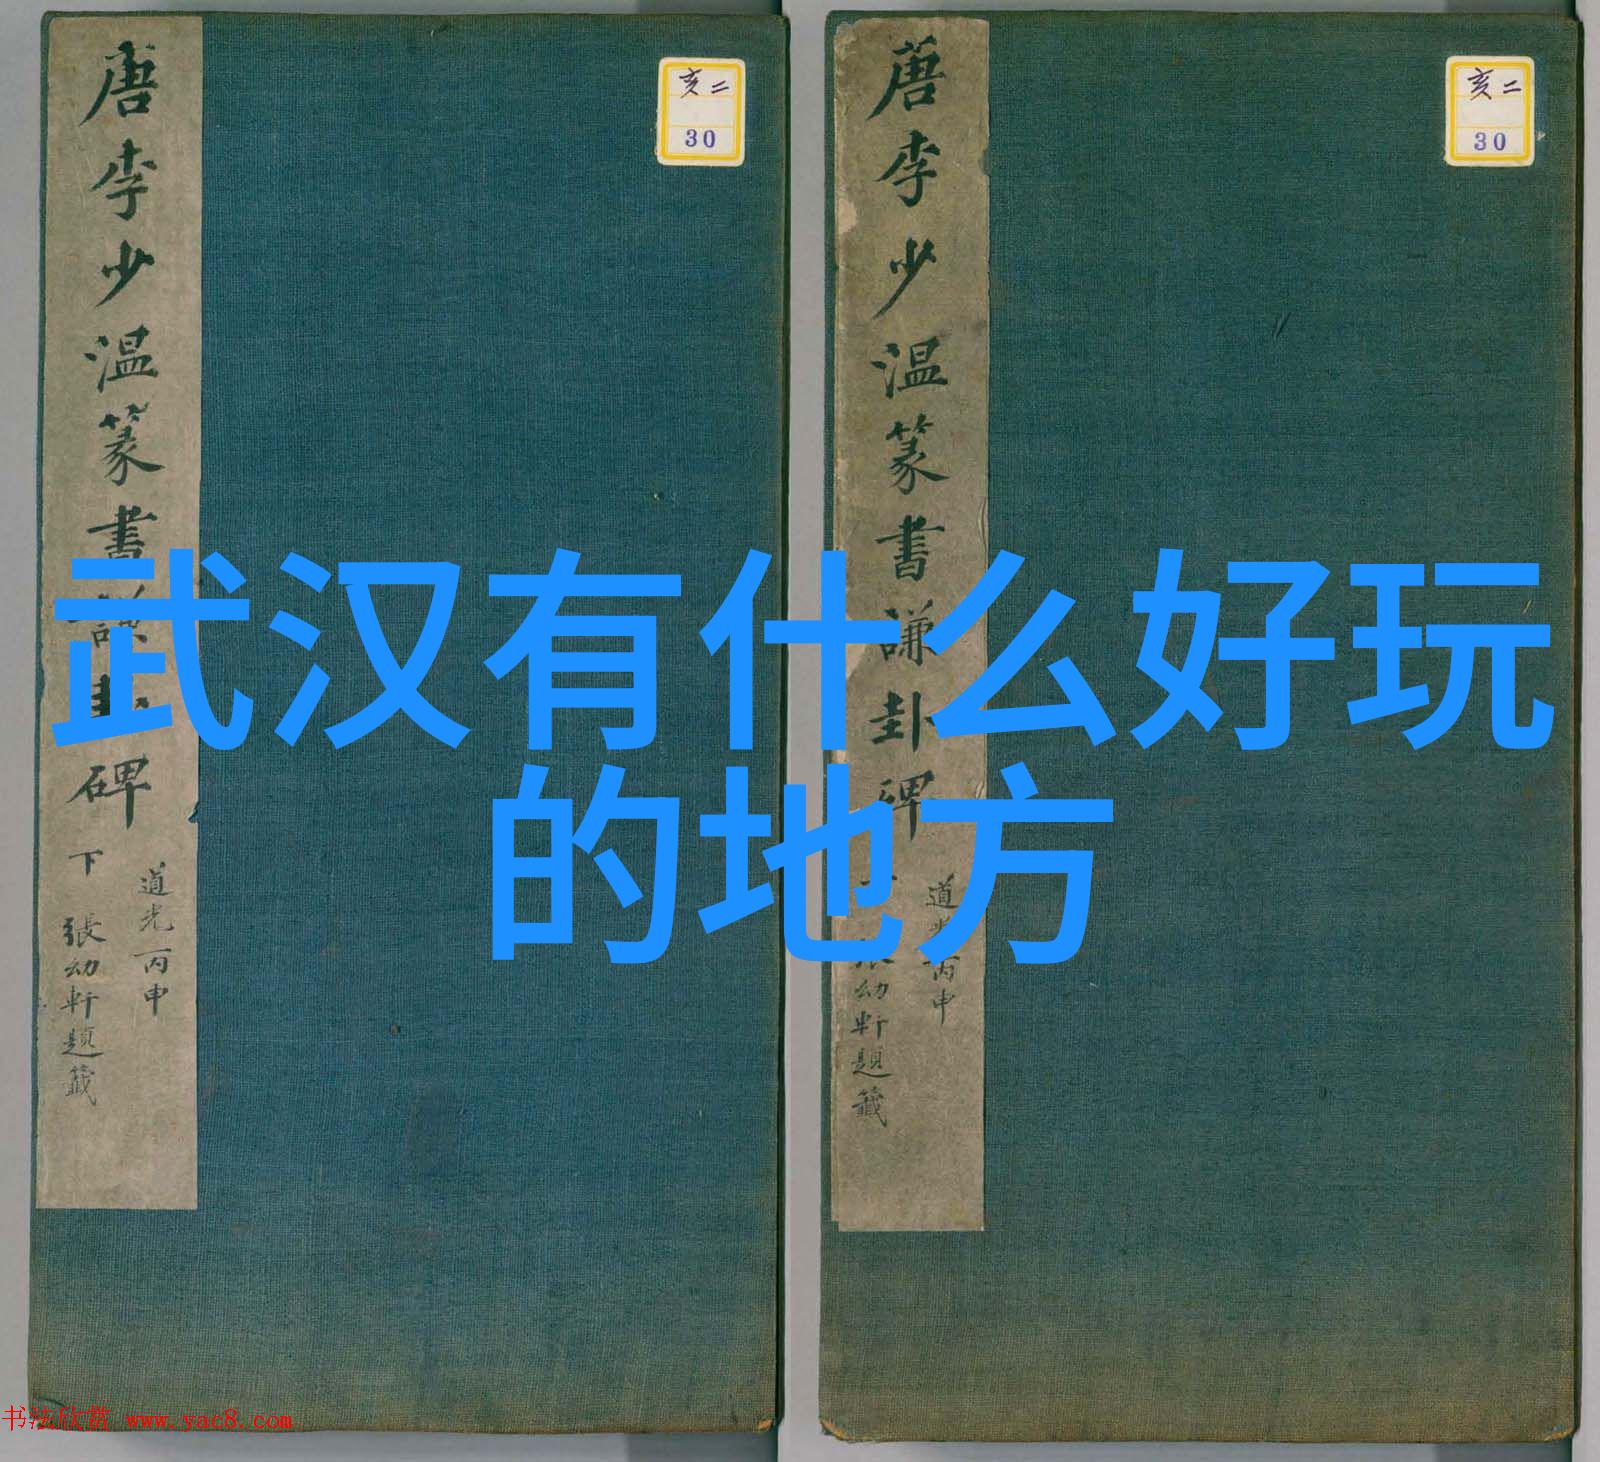 唐李少温篆書謙卦碑
下
道光丙申
張幼軒題籤
亥二
30
唐李少温篆書謙卦碑
道光丙申
張幼軒題籤
亥二
30
武汉有什么好玩
的地方
书法欣赏 www.yac8.com